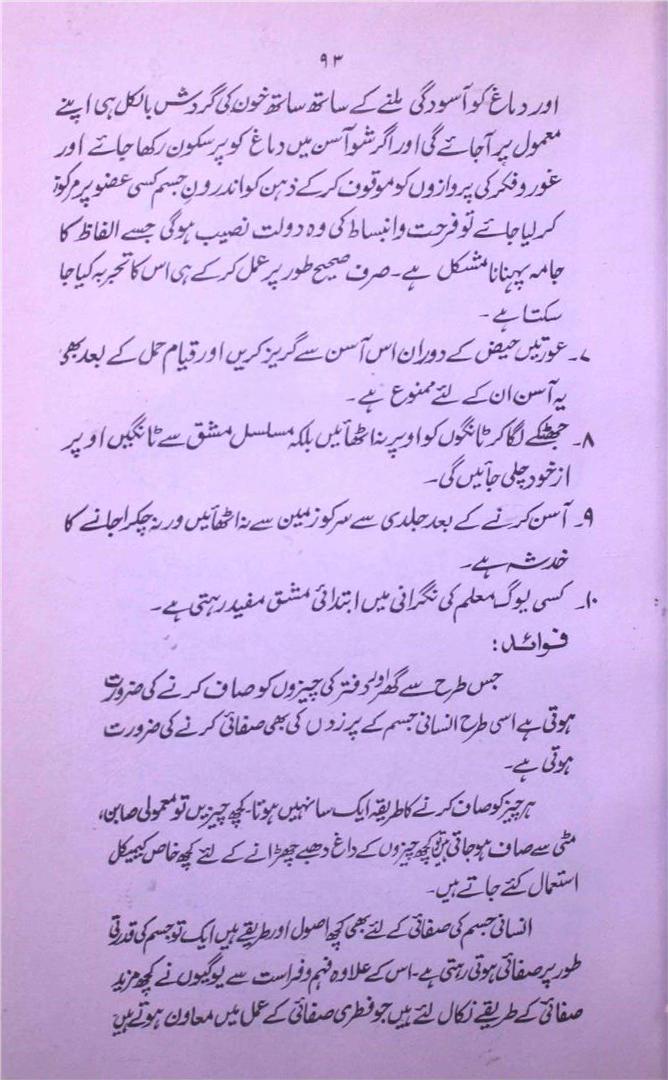 ۹۳
اور دماغ کو آسودگی ملنے کے ساتھ ساتھ خون کی گردش بالکل ہی اپنے
معمول پر آجائے گی اور اگر شو آسن میں دماغ کو پرسکون رکھا جائے اور
غور و فکر کی پروازوں کو موقوف کرکے ذہن کو اندرونِ جسم کسی عضو پر مرکوز
کرلیا جائے تو فرحت و انبساط کی وہ دولت نصیب ہوگی جسے الفاظ کا
جامہ پہنانا مشکل ہے۔ صرف صحیح طور پر عمل کرکے ہی اس کا تجربہ کیا جا
سکتا ہے۔
۷۔ عورتیں حیض کے دوران اس آسن سے گریز کریں اور قیام حمل کے بعد بھی
یہ آسن ان کے لئے ممنوع ہے۔
۸۔ جھٹکے لگا کر ٹانگوں کو اوپر نہ اٹھائیں بلکہ مسلسل مشق سے ٹانگیں اوپر
از خود چلی جائیں گی۔
۹۔ آسن کرنے کے بعد جلدی سے سر کو زمین سے نہ اٹھائیں ورنہ چکرا جانے کا
خدشہ ہے۔
۱۰۔ کسی یوگ معلم کی نگرانی میں ابتدائی مشق مفید رہتی ہے۔
فوائد:
جس طرح سے گھر اور دفتر کی چیزوں کو صاف کرنے کی ضرورت
ہوتی ہے اسی طرح انسانی جسم کے پرزوں کی بھی صفائی کرنے کی ضرورت
ہوتی ہے۔
ہر چیز کو صاف کرنے کا طریقہ ایک سا نہیں ہوتا۔ کچھ چیزیں تو معمولی صابن،
مٹی سے صاف ہوجاتی ہیں تو کچھ چیزوں کے داغ دھبے چھڑانے کے لئے کچھ خاص کیمیکل
استعمال کئے جاتے ہیں۔
انسانی جسم کی صفائی کے لئے بھی کچھ اصول اور طریقے ہیں ایک تو جسم کی قدرتی
طور پر صفائی ہوتی رہتی ہے۔ اس کے علاوہ فہم و فراست سے یوگیوں نے کچھ مزید
صفائی کے طریقے نکال لئے ہیں جو فطری صفائی کے عمل میں معاون ہوتے ہیں